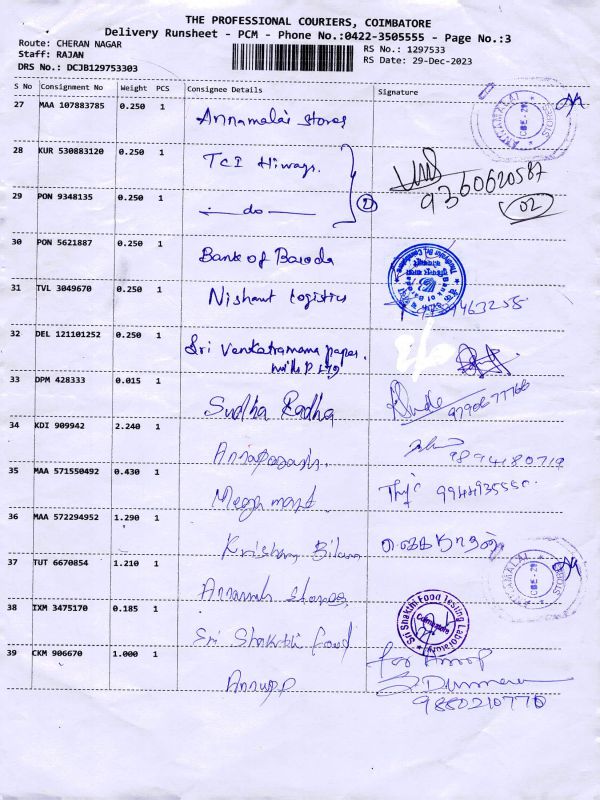 THE PROFESSIONAL COURIERS, COIMBATORE
Delivery Runsheet - PCM - Phone No.:0422-3505555 - Page No.:3
Route: CHERAN NAGAR
RS No.: 1297533
Staff: RAJAN
RS Date: 29-Dec-2023
DRS No.: DCJB129753303
S No Consignment No Weight PCS Consignee Details Signature
27 MAA 107883785 0.250 1 Annamalai Stores
28 KUR 530883120 0.250 1 TCI Hiways. 9360620587
29 PON 9348135 0.250 1 do 2 02
30 PON 5621887 0.250 1 Bank of Baroda
31 TVL 3049670 0.250 1 Nishant Logistics
32 DEL 121101252 0.250 1 Sri Venkatramana paper
mills P Ltd
33 DPM 428333 0.015 1 Sudha Radha
34 KDI 909942 2.240 1 9894180719
35 MAA 571550492 0.430 1 Mega mart.
36 MAA 572294952 1.290 1 Krishna
37 TUT 6670854 1.210 1 Stores
38 IXM 3475170 0.185 1 Sri Shakthi food
Sri Shakthi Food Testing Laboratory
Coimbatore
39 CKM 906670 1.000 1 for Anup
9880210770